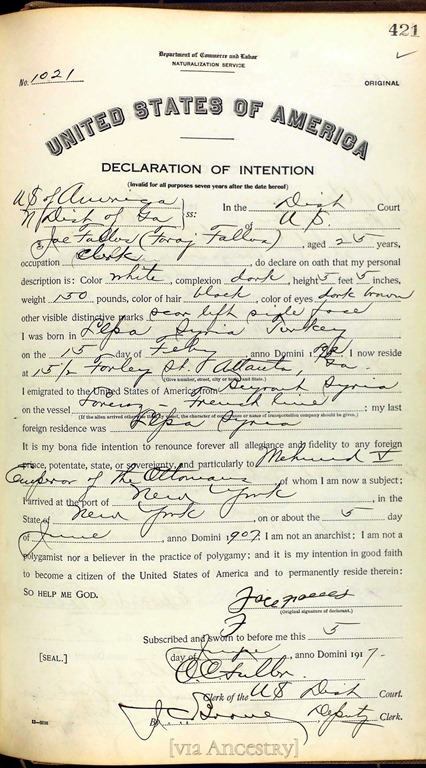 421
Department of Commerce and Labor
NATURALIZATION SERVICE
No. 1021
ORIGINAL
UNITED STATES OF AMERICA
DECLARATION OF INTENTION
(Invalid for all purposes seven years after the date hereof)
U S of America
N Dist of Ga
ss:
In the Dist Court
of U S.
I, Joe Fallos (Foraj Fallos), aged 25 years,
occupation Clerk, do declare on oath that my personal
description is: Color white, complexion dark, height 5 feet 5 inches,
weight 150 pounds, color of hair black, color of eyes dark brown
other visible distinctive marks scar left side face
I was born in Syria Turkey
on the 15 day of Feby, anno Domini ; I now reside
at St. Atlanta, Ga.
(Give number, street, city or town, and State.)
I emigrated to the United States of America from Beyrout Syria
on the vessel Foreign French line ; my last
(If the alien arrived otherwise than by vessel, the character of conveyance or name of transportation company should be given.)
foreign residence was Syria
It is my bona fide intention to renounce forever all allegiance and fidelity to any foreign
prince, potentate, state, or sovereignty, and particularly to Mehmed V
Emperor of the Ottomans of whom I am now a subject;
I arrived at the port of New York, in the
State of New York, on or about the 5 day
of June, anno Domini 1907. I am not an anarchist; I am not a
polygamist nor a believer in the practice of polygamy; and it is my intention in good faith
to become a citizen of the United States of America and to permanently reside therein:
SO HELP ME GOD.
(Original signature of declarant.)
Subscribed and sworn to before me this 5
[SEAL.] day of June, anno Domini 1917.
O C Fuller
Clerk of the U S Dist Court.
By Deputy Clerk.
[via Ancestry]